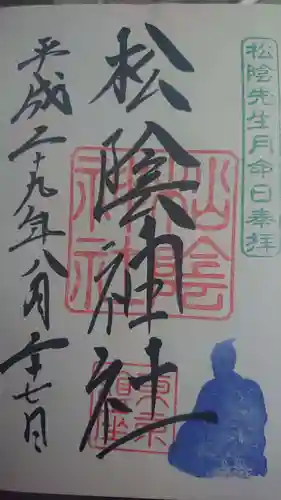 松陰先生月命日奉拝
松陰神社
松陰神社
東京
鎮座
平成二十九年八月二十七日